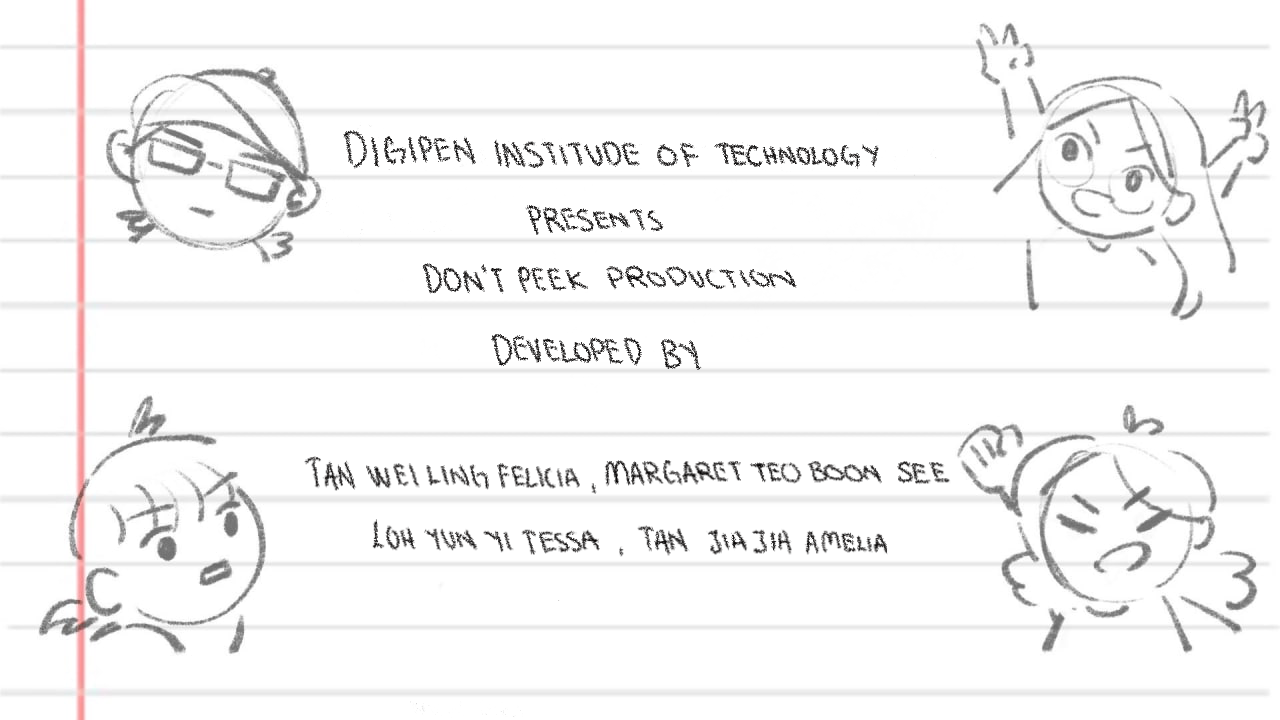 DIGIPEN INSTITUDE OF TECHNOLOGY
PRESENTS
DON'T PEEK PRODUCTION
DEVELOPED BY
TAN WEI LING FELICIA, MARGARET TEO BOON SEE
LOH YUN YI TESSA, TAN JIA JIA AMELIA